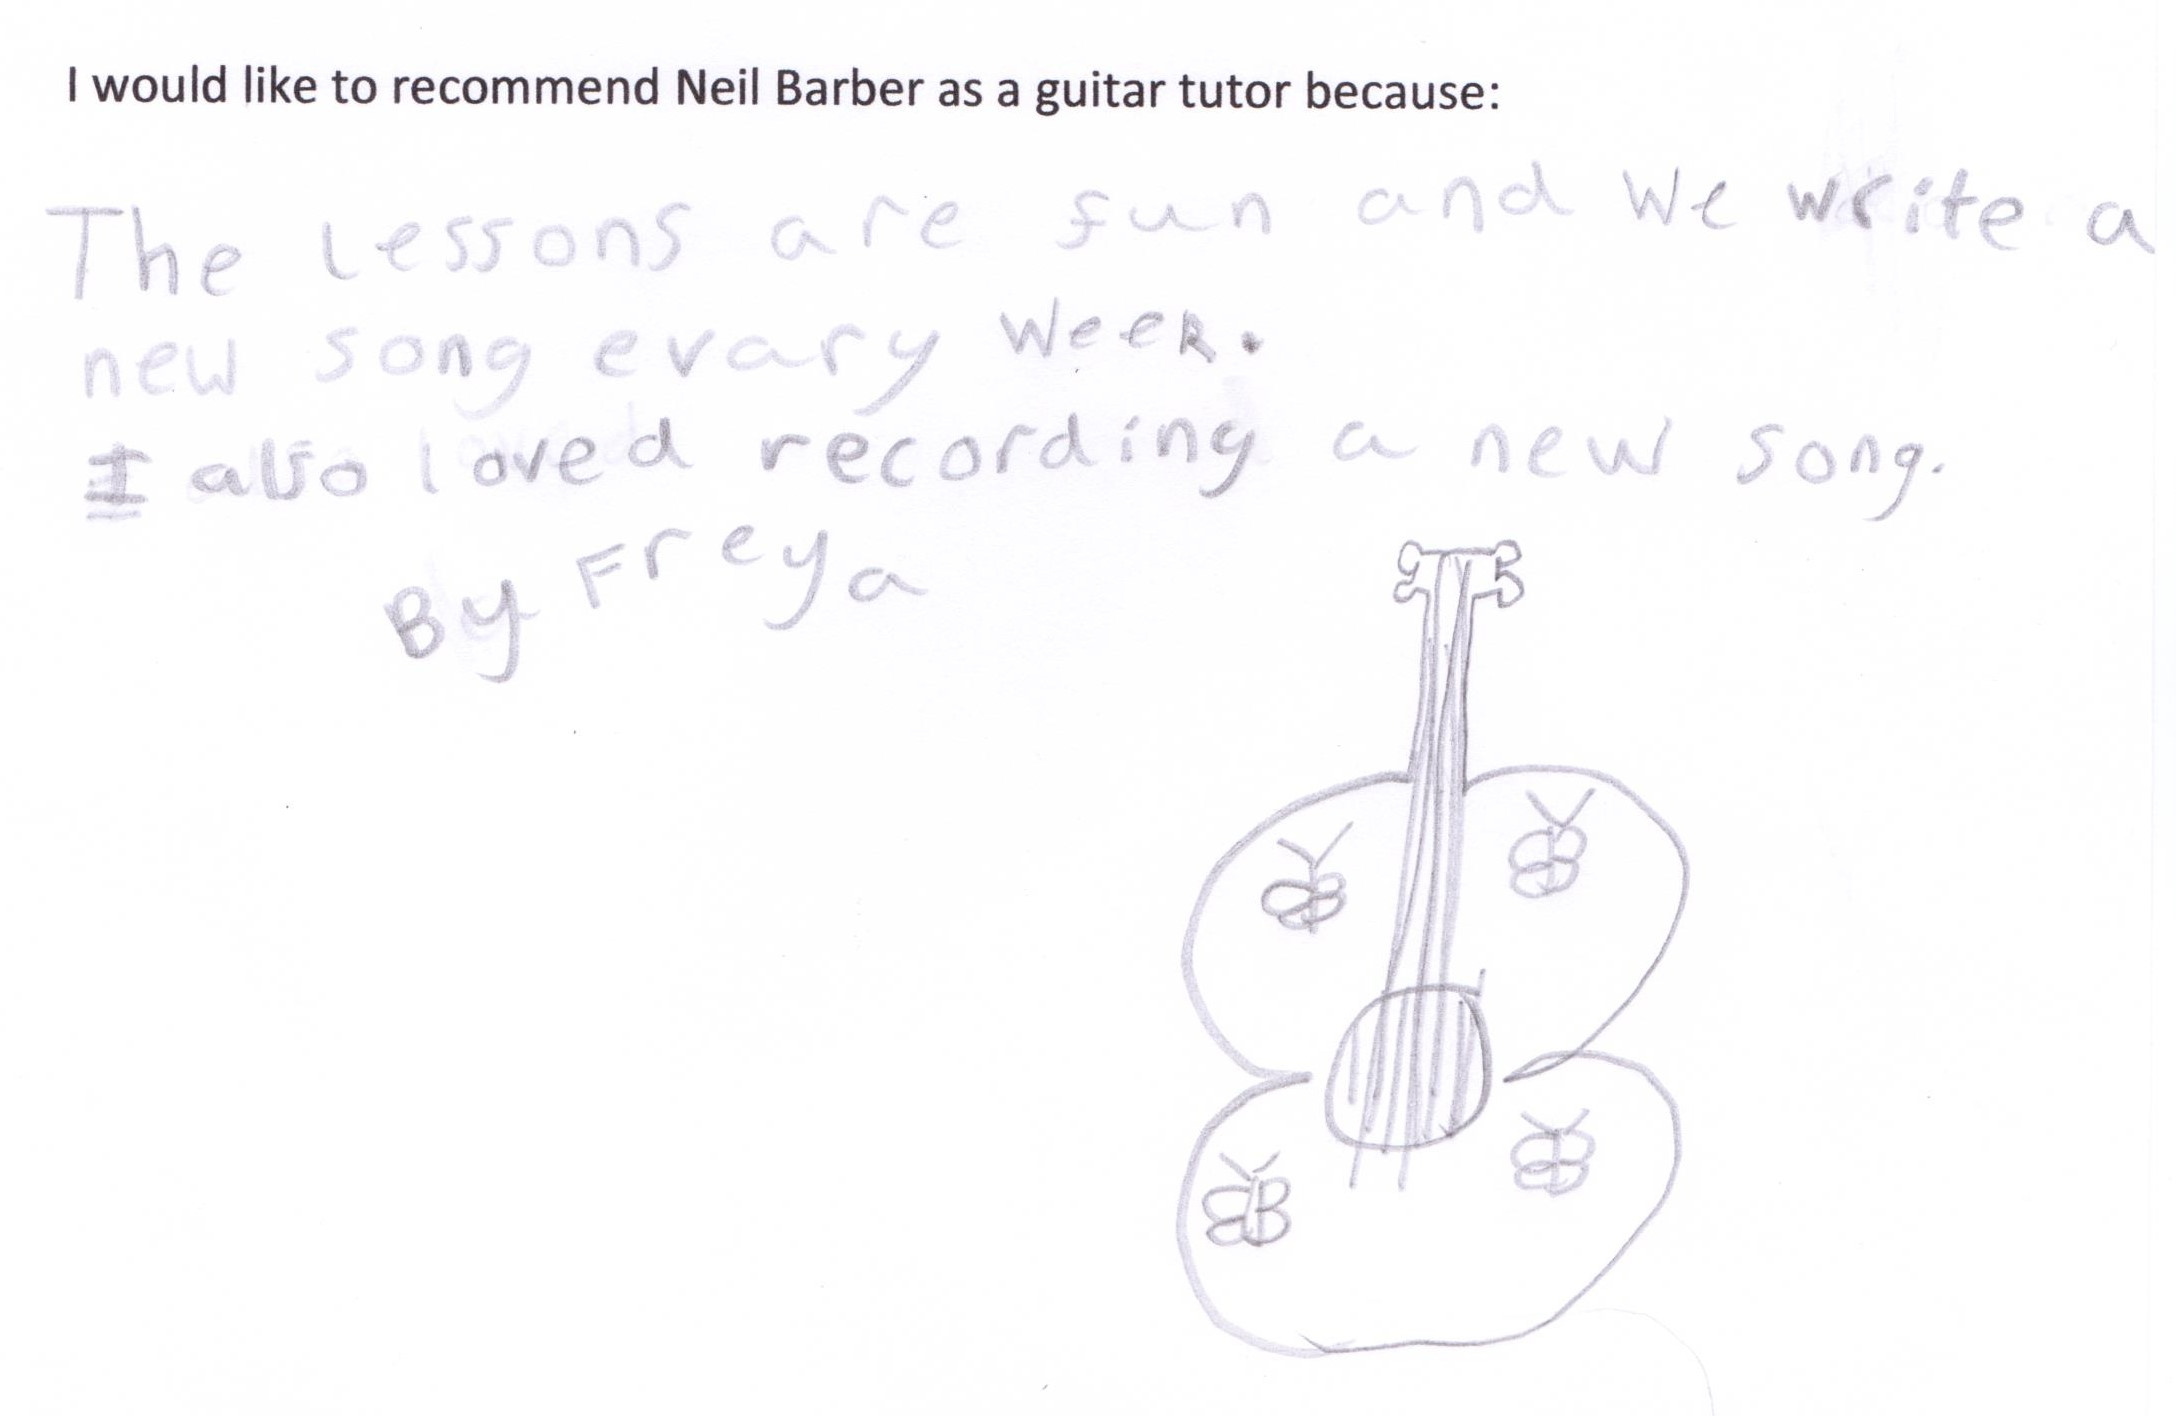 I would like to recommend Neil Barber as a guitar tutor because:
The lessons are fun and we write a
new song evary week.
I also loved recording a new song.
By Freya